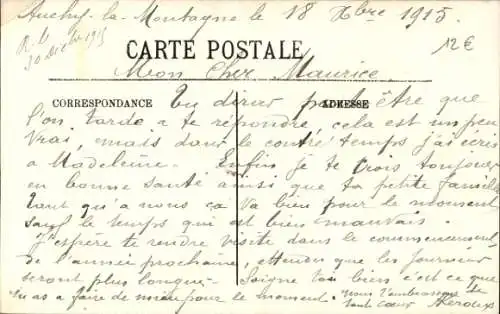 Auchy-la-Montagne le 18 Xbre 1915
R. le
30 Décbre 1915
12€
CARTE POSTALE
Mon Cher Maurice
CORRESPONDANCE
ADRESSE
Tu diras peut être que
l'on tarde a te répondre, cela est un peu
vrai, mais dans le contre temps j'ai écris
a Madeleine. Enfin je te crois toujours
en bonne santé ainsi que ta petite famille
tant qu'a nous ça va bien pour le moment
sauf le temps qui est bien mauvais.
J'espère te rendre visite dans le commencement
de l'année prochaine, attendu que les journées
seront plus longue. Soigne toi bien c'est ce que
tu as a faire de mieu pour le moment. nous t'embrassons de
tout cœur